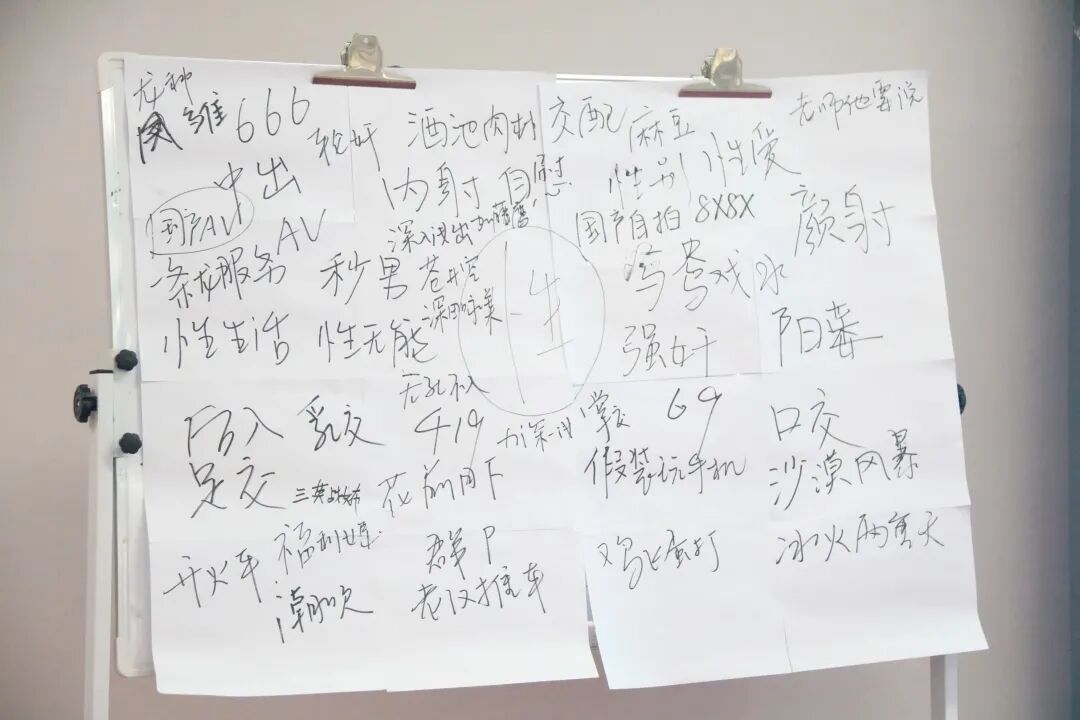 龙种
维 666
轮奸
酒池肉林
交配
麻豆
老师他要说
中出
内射
自慰
性别
性爱
国产AV
AV
深入浅出
国产自拍
8X8X
颜射
一条龙服务
秒男
苍井空
鸳鸯戏水
性生活
性无能
深田咏美
性
强奸
阳痿
无孔不入
后入
乳交
419
掌交
69
口交
足交
三英战吕布
花前月下
假装玩手机
沙漠风暴
开火车
福利姬
群P
鸡飞蛋打
冰火两重天
潮吹
老汉推车